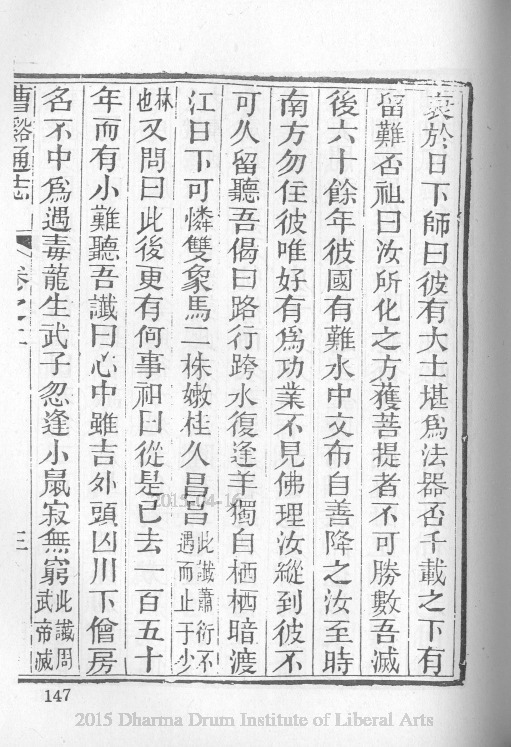 衰於日下師曰彼有大士堪爲法器否千載之下有
留難否祖曰汝所化之方獲菩提者不可勝數吾滅
後六十餘年彼國有難水中文布自善降之汝至時
南方勿住彼唯好有爲功業不見佛理汝縱到彼不
可久留聽吾偈曰路行跨水復逢羊獨自栖栖暗渡
江日下可憐雙象馬二株嫩桂久昌昌此讖蕭衍不
遇而止于少
林
也又問曰此後更有何事祖曰從是已去一百五十
年而有小難聽吾讖曰心中雖吉外頭凶川下僧房
名不中爲遇毒龍生武子忽逢小鼠寂無窮此讖周
武帝滅
曹谿通志 卷之二 三
2015-04-16
147
2015 Dharma Drum Institute of Liberal Arts